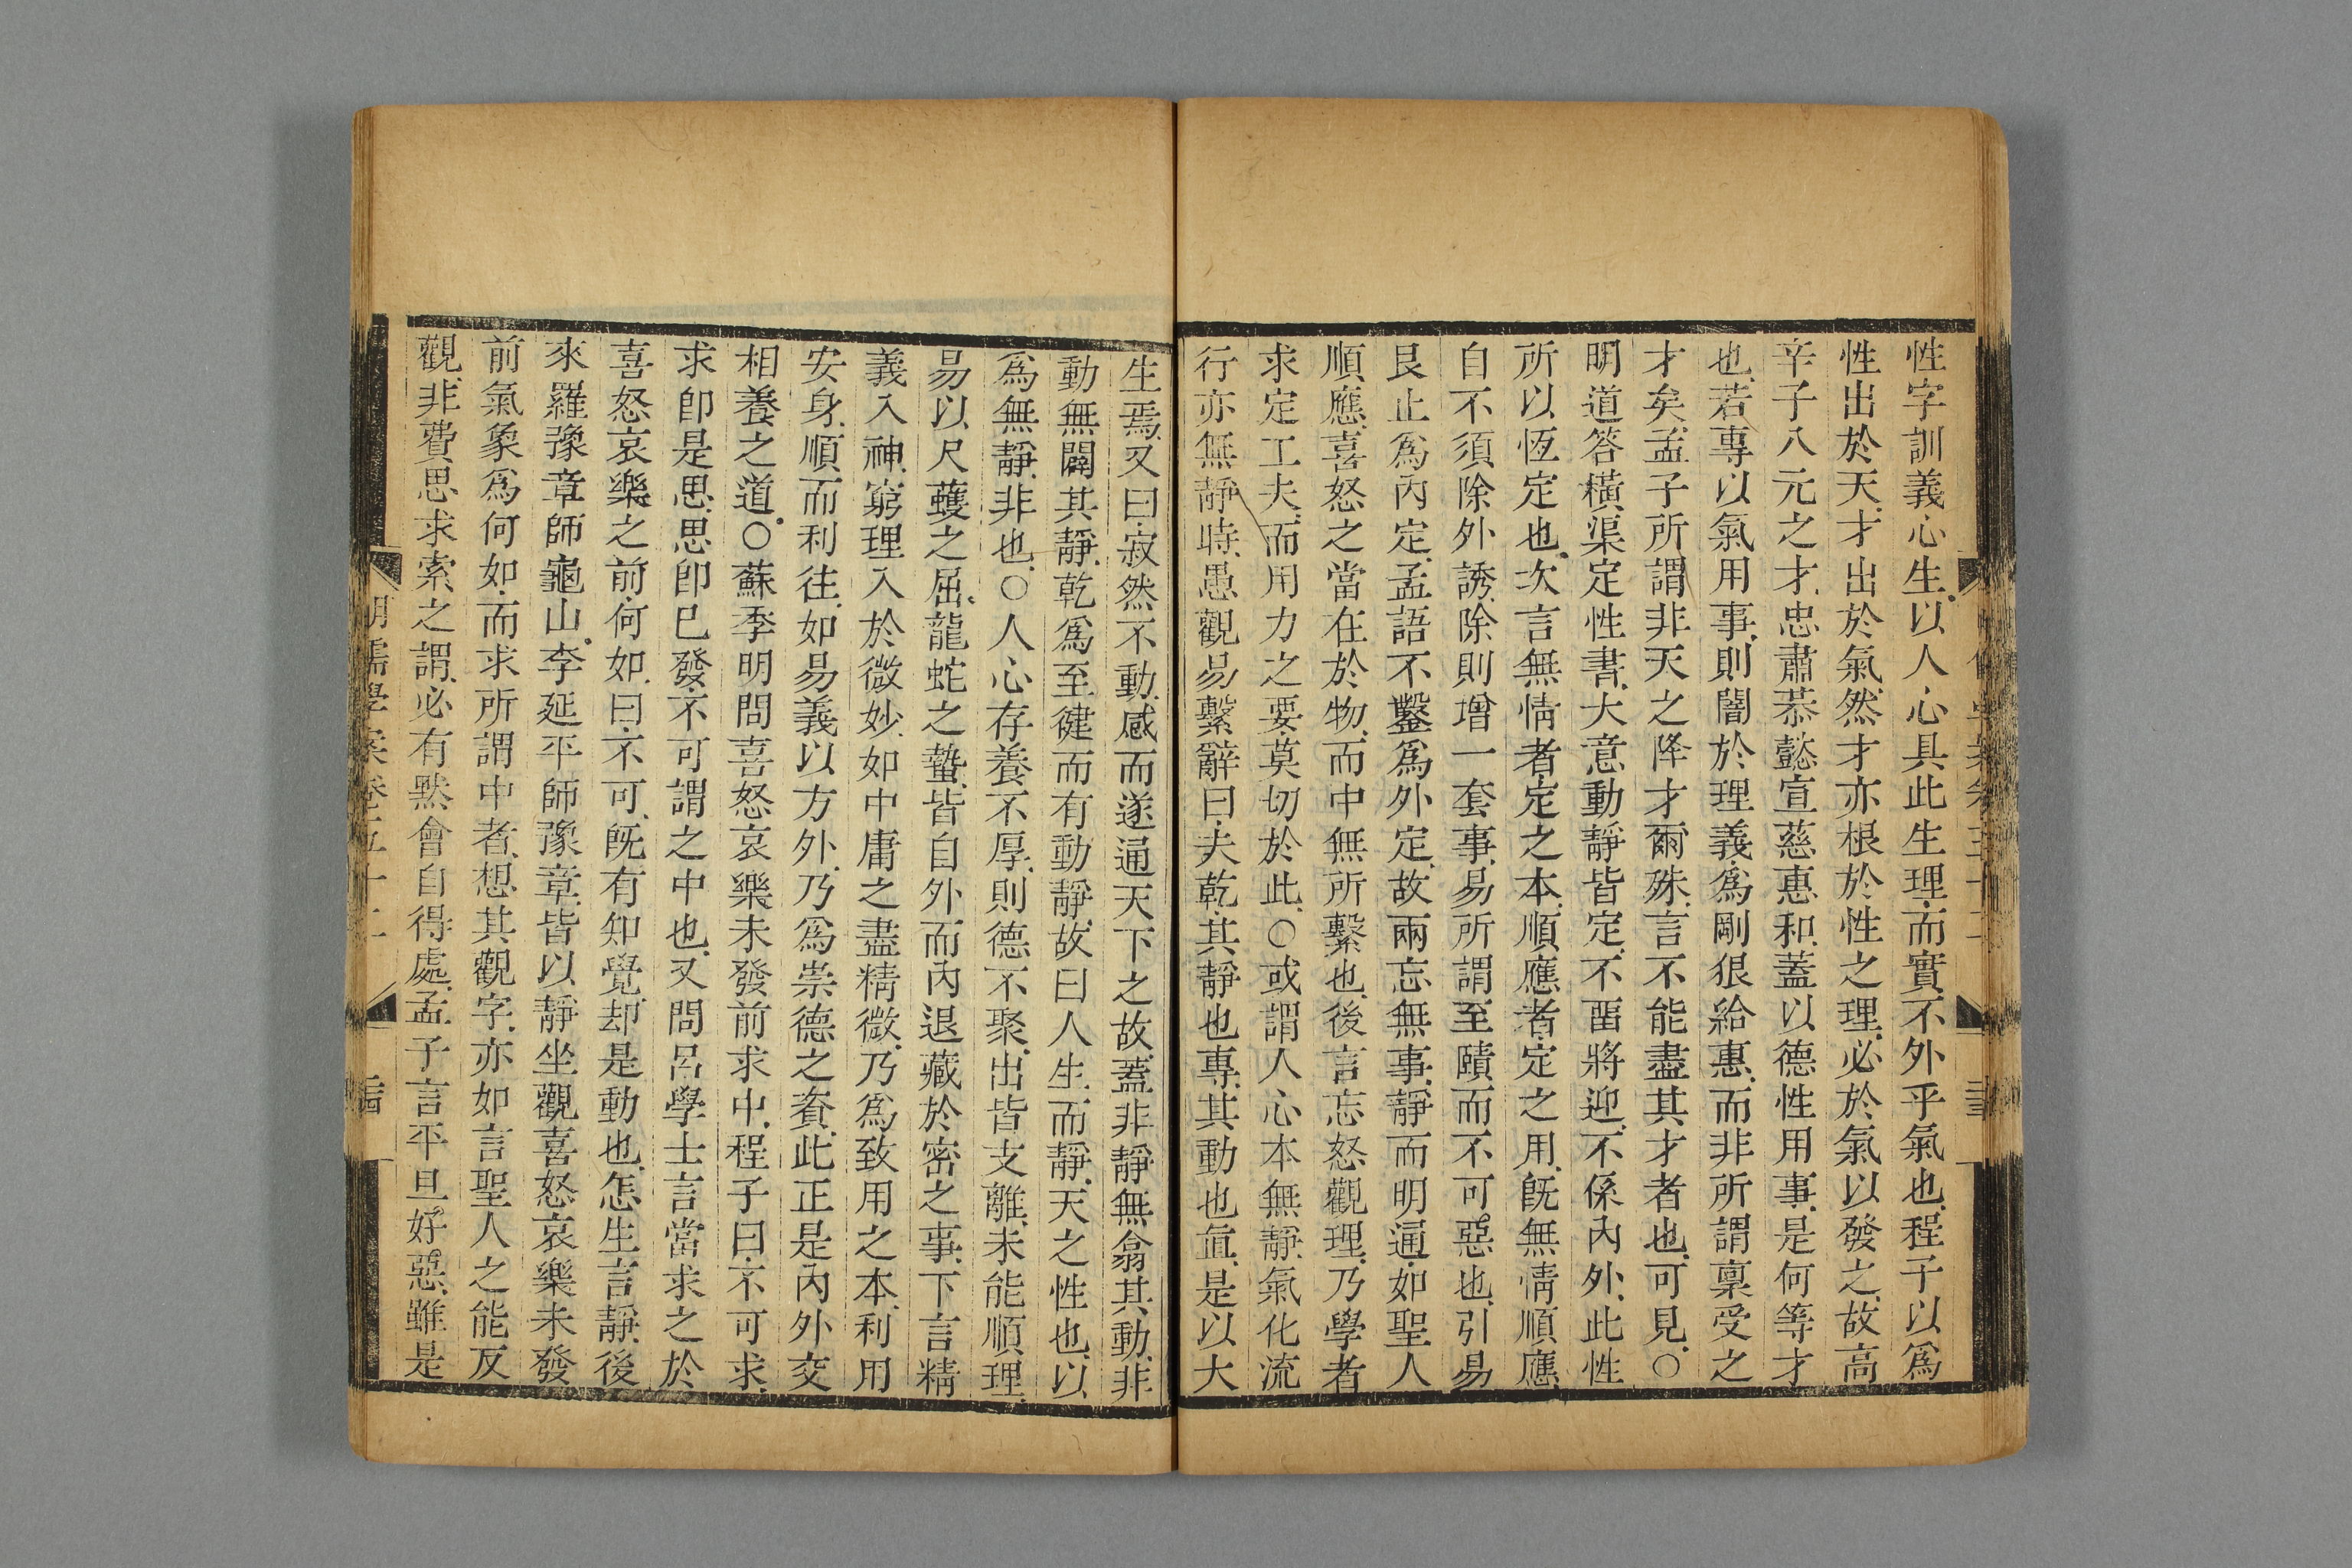 性字訓義心生以人心具此生理而實不外乎氣也程子以爲
性出於天才出於氣然才亦根於性之理必於氣以發之故高
辛子八元之才忠肅恭懿宣慈惠和蓋以德性用事是何等才
也若專以氣用事則闇於理義爲剛狠給惠而非所謂禀受之
才矣孟子所謂非天之降才爾殊言不能盡其才者也可見○
明道答橫渠定性書大意動靜皆定不畱將迎不係內外此性
所以恆定也次言無情者定之本順應者定之用旣無情順應
自不須除外誘除則增一套事易所謂至賾而不可惡也引易
艮止爲內定孟語不鑿爲外定故兩忘無事靜而明通如聖人
順應喜怒之當在於物而中無所繫也後言忘怒觀理乃學者
求定工夫而用力之要莫切於此○或謂人心本無靜氣化流
行亦無靜時愚觀易繫辭曰夫乾其靜也專其動也直是以大
生焉又曰寂然不動感而遂通天下之故蓋非靜無翕其動非
動無闢其靜乾爲至健而有動靜故曰人生而靜天之性也以
爲無靜非也○人心存養不厚則德不聚出皆支離未能順理
易以尺蠖之屈龍蛇之蟄皆自外而內退藏於密之事下言精
義入神窮理入於微妙如中庸之盡精微乃爲致用之本利用
安身順而利往如易義以方外乃爲崇德之資此正是內外交
相養之道○蘇季明問喜怒哀樂未發前求中程子曰不可求
求卽是思思卽已發不可謂之中也又問呂學士言當求之於
喜怒哀樂之前何如曰不可旣有知覺却是動也怎生言靜後
來羅豫章師龜山李延平師豫章皆以靜坐觀喜怒哀樂未發
前氣象爲何如而求所謂中者想其觀字亦如言聖人之能反
觀非費思求索之謂必有默會自得處孟子言平旦好惡雖是
明儒學案卷五十二